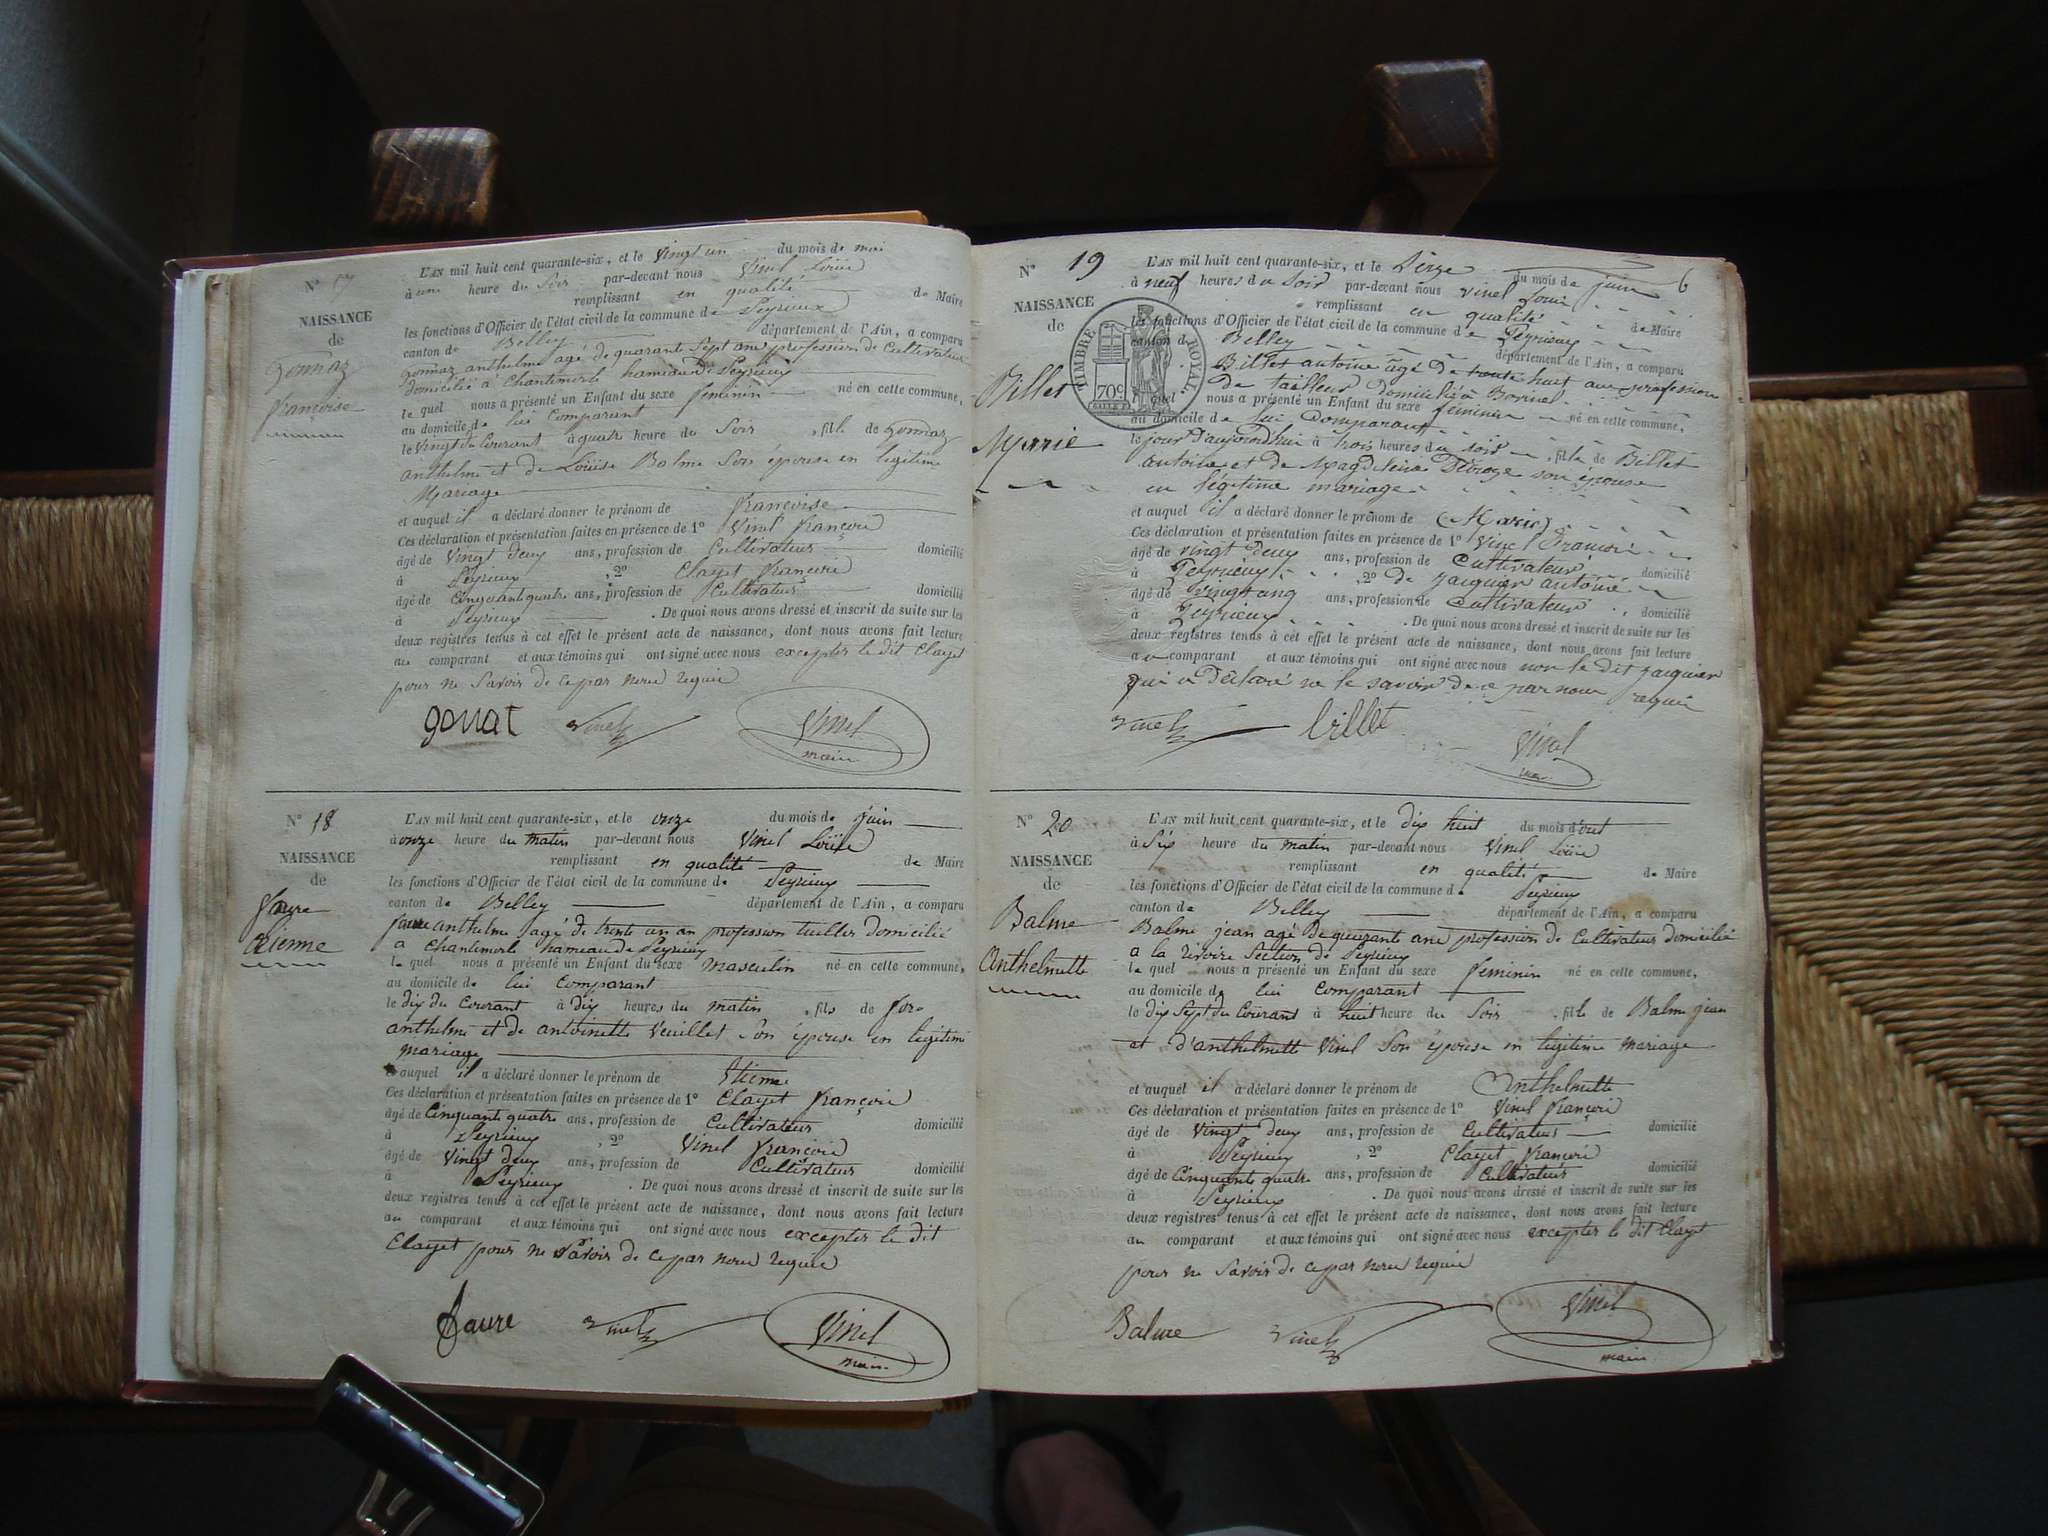 N° 17
NAISSANCE
de
Gonnaz
françoise
L'AN mil huit cent quarante-six, et le Vingt un du mois de mai
à une heure du Soir par-devant nous Vinel Loüis
remplissant en qualité de Maire
les fonctions d'Officier de l'état civil de la commune de Peyrieux
canton de Belley département de l'Ain, a comparu
Gonnaz anthelme agé de quarante Sept ans profession de Cultivateur
domicilié à Chantemerle hameau de Peyrieux
le quel nous a présenté un Enfant du sexe feminin né en cette commune,
au domicile de lui comparant
le Vingt du Courant à quatre heure du Soir , fille de Gonnaz
anthelme et de Loüise Balme Son épouse en legitime
Mariage
et auquel il a déclaré donner le prénom de françoise
Ces déclaration et présentation faites en présence de 1° Vinel françois
âgé de Vingt deux ans, profession de Cultivateur domicilié
à Peyrieux , 2° Clayet françois
âgé de Cinquante quatre ans, profession de Cultivateur domicilié
à Peyrieux . De quoi nous avons dressé et inscrit de suite sur les
deux registres tenus à cet effet le présent acte de naissance, dont nous avons fait lecture
au comparant et aux témoins qui ont signé avec nous excepter le dit Clayet
pour ne Savoir de ce par nous requis
gonat Vinel Vinel
maire
N° 18
NAISSANCE
de
faure
Etienne
L'AN mil huit cent quarante-six, et le onze du mois de juin
à onze heure du matin par-devant nous Vinel Loüis
remplissant en qualité de Maire
les fonctions d'Officier de l'état civil de la commune de Peyrieux
canton de Belley département de l'Ain, a comparu
faure anthelme agé de trente un an profession tuillier domicilié
a Chantemerle hameau de Peyrieux
le quel nous a présenté un Enfant du sexe masculin né en cette commune,
au domicile de lui comparant
le dix du Courant à dix heures du matin , fils de fore
anthelme et de antoinette Veuillet Son épouse en legitime
mariage
et auquel il a déclaré donner le prénom de Etienne
Ces déclaration et présentation faites en présence de 1° Clayet françois
âgé de Cinquante quatre ans, profession de Cultivateur domicilié
à Peyrieux , 2° Vinel françois
âgé de Vingt deux ans, profession de Cultivateur domicilié
à Peyrieux . De quoi nous avons dressé et inscrit de suite sur les
deux registres tenus à cet effet le présent acte de naissance, dont nous avons fait lecture
au comparant et aux témoins qui ont signé avec nous excepter le dit
Clayet pour ne Savoir de ce par nous requis
Faure Vinel Vinel
maire
N° 19
6
NAISSANCE
de
Billet
Marie
TIMBRE ROYAL
70c
L'AN mil huit cent quarante-six, et le du mois de juin
à neuf heures du Soir par-devant nous Vinel Louis
remplissant en qualité de Maire
les fonctions d'Officier de l'état civil de la commune de Peyrieux
canton de Belley département de l'Ain, a comparu
Billet antoine âgé de trente huit ans profession
de tailleur domicilié à
le quel nous a présenté un Enfant du sexe feminin né en cette commune,
au domicile de lui Comparant
le jour d'aujourd'hui à trois heures du soir , fille de Billet
antoine et de Magdeleine son épouse
en légitime mariage
et auquel il a déclaré donner le prénom de (Marie)
Ces déclaration et présentation faites en présence de 1° Vinel François
âgé de vingt deux ans, profession de Cultivateur domicilié
à Peyrieux , 2° de Jacquier antoine
âgé de vingt cinq ans, profession de Cultivateur domicilié
à Peyrieux . De quoi nous avons dressé et inscrit de suite sur les
deux registres tenus à cet effet le présent acte de naissance, dont nous avons fait lecture
au comparant et aux témoins qui ont signé avec nous non le dit Jacquier
qui a déclaré ne le savoir de ce par nous requis
Vinel billet Vinel
N° 20
NAISSANCE
de
Balme
Anthelmette
L'AN mil huit cent quarante-six, et le dix huit du mois d'out
à Six heure du matin par-devant nous Vinel Loüis
remplissant en qualité de Maire
les fonctions d'Officier de l'état civil de la commune de Peyrieux
canton de Belley département de l'Ain, a comparu
Balme jean agé de quarante ans profession de Cultivateur domicilié
a la rivoire Section de Peyrieux
le quel nous a présenté un Enfant du sexe feminin né en cette commune,
au domicile de lui comparant
le dix Sept du Courant à huit heure du Soir , fille de Balme jean
et d'anthelmette Vinel Son épouse en legitime mariage
et auquel il a déclaré donner le prénom de Anthelmette
Ces déclaration et présentation faites en présence de 1° Vinel françois
âgé de Vingt deux ans, profession de Cultivateur domicilié
à Peyrieux , 2° Clayet françois
âgé de Cinquante quatre ans, profession de Cultivateur domicilié
à Peyrieux . De quoi nous avons dressé et inscrit de suite sur les
deux registres tenus à cet effet le présent acte de naissance, dont nous avons fait lecture
au comparant et aux témoins qui ont signé avec nous excepter le dit Clayet
pour ne Savoir de ce par nous requis
Balme Vinel Vinel
maire